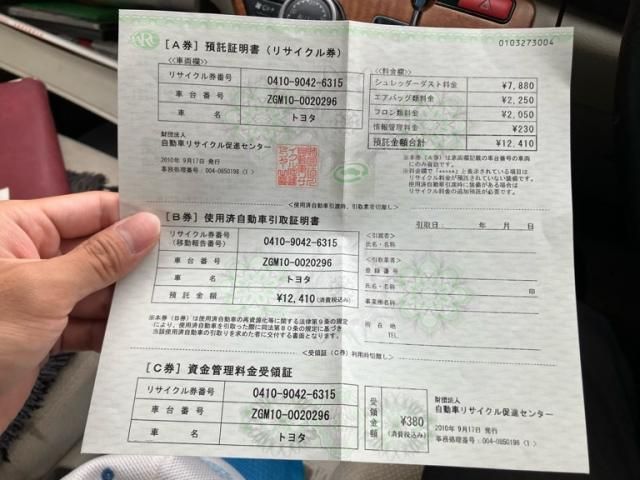 0103273004
[A券] 預託証明書（リサイクル券）
<<車両欄>>
リサイクル券番号 0410-9042-6315
車台番号 ZGM10-0020296
車名 トヨタ
<<料金欄>>
シュレッダーダスト料金 ¥7,880
エアバッグ類料金 ¥2,250
フロン類料金 ¥2,050
情報管理料金 ¥230
預託金額合計 ¥12,410
財団法人
自動車リサイクル促進センター
2010年 9月17日 発行
事務処理番号：004-0850198（1）
※本券（A券）は車両欄記載の車台番号の車両
にのみ有効です。
※料金欄で「*****」と表示されている項目は
リサイクル料金が預託されていない装備です。
使用済自動車引渡時に装備がある場合は
リサイクル料金の追加預託が必要です。
<使用済自動車引渡時、引取業者切離し>
[B券] 使用済自動車引取証明書
引取日： 年 月 日
リサイクル券番号
（移動報告番号） 0410-9042-6315
車台番号 ZGM10-0020296
車名 トヨタ
預託金額 ¥12,410（消費税込み）
<引渡者>
氏名・名称
<引取業者>
登録番号
氏名・名称 印
事業所名称
所在地
TEL.
※本券（B券）は使用済自動車の再資源化等に関する法律第9条の規定
により、使用済自動車を引取った際に同法第80条の規定に基づき
当該使用済自動車の引取りを求めた者に交付する書面となります。
<受領証（C券）利用時切離し>
[C券] 資金管理料金受領証
リサイクル券番号 0410-9042-6315
車台番号 ZGM10-0020296
車名 トヨタ
受領金額 ¥380
（消費税込み）
財団法人
自動車リサイクル促進センター
2010年 9月17日 発行
事務処理番号：004-0850198（1）